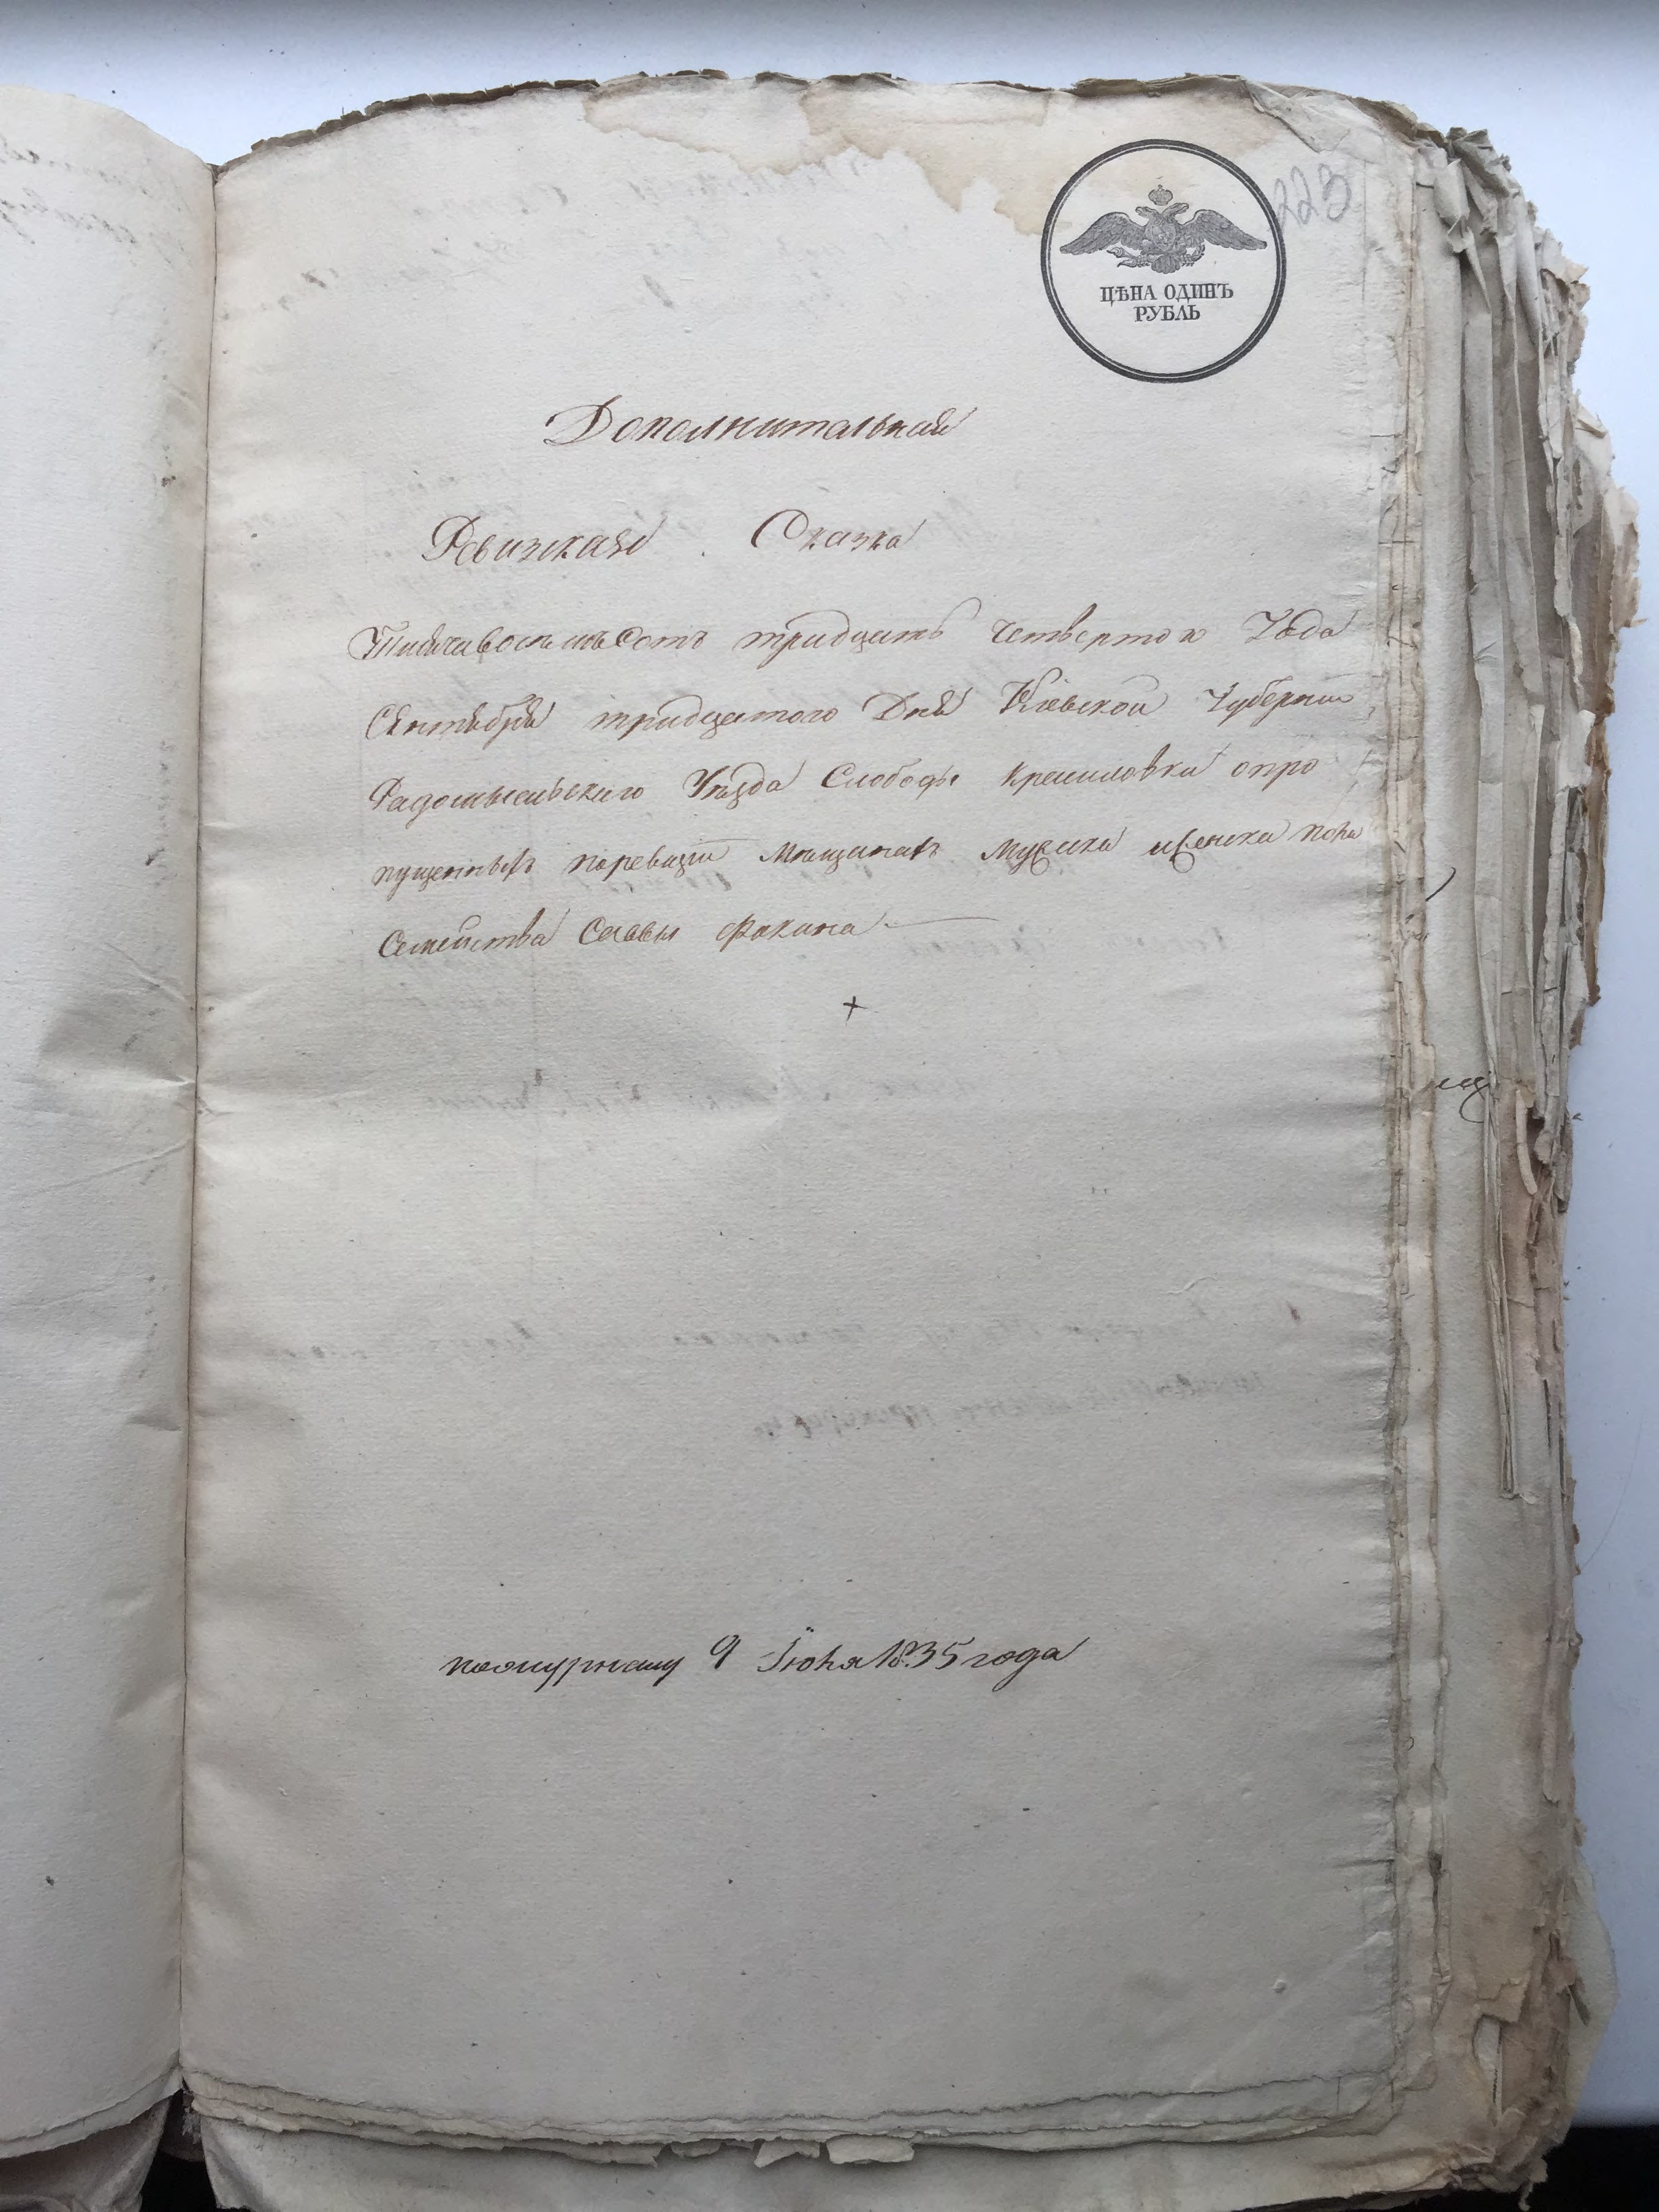 223
ЦѢНА ОДИНЪ
РУБЛЬ
Дополнительная
Ревизская Сказка
Тысяча восемьсотъ тридцать четверток Года
Сентября тридцатого Дня Кіевской Губерніи
Радомысльского Уезда Слободы Кримловки опро
пущенныхъ поревизіи Мещанахъ мужска иженска пола
Семейства Саввы Фокина
пожурналу 9 Іюня 1835 года